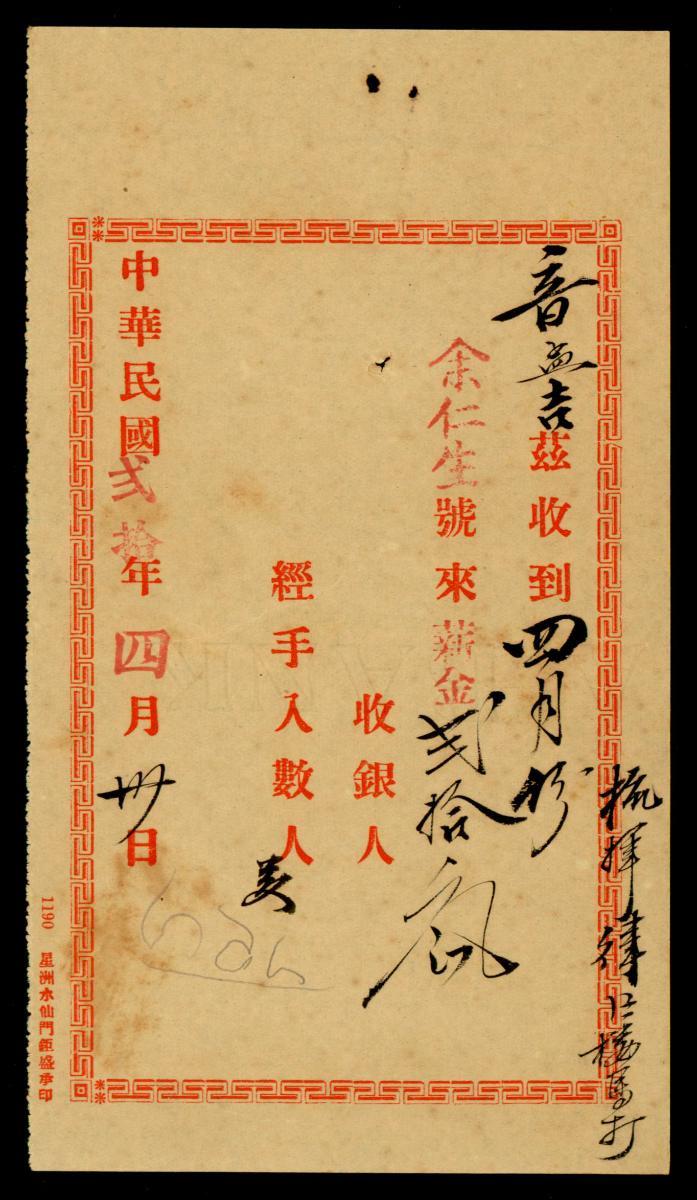 茲收到四月份
余仁生號來薪金弍拾元
收銀人
經手入數人
中華民國弍拾年四月卅日
1190 星洲水仙門鉅盛承印